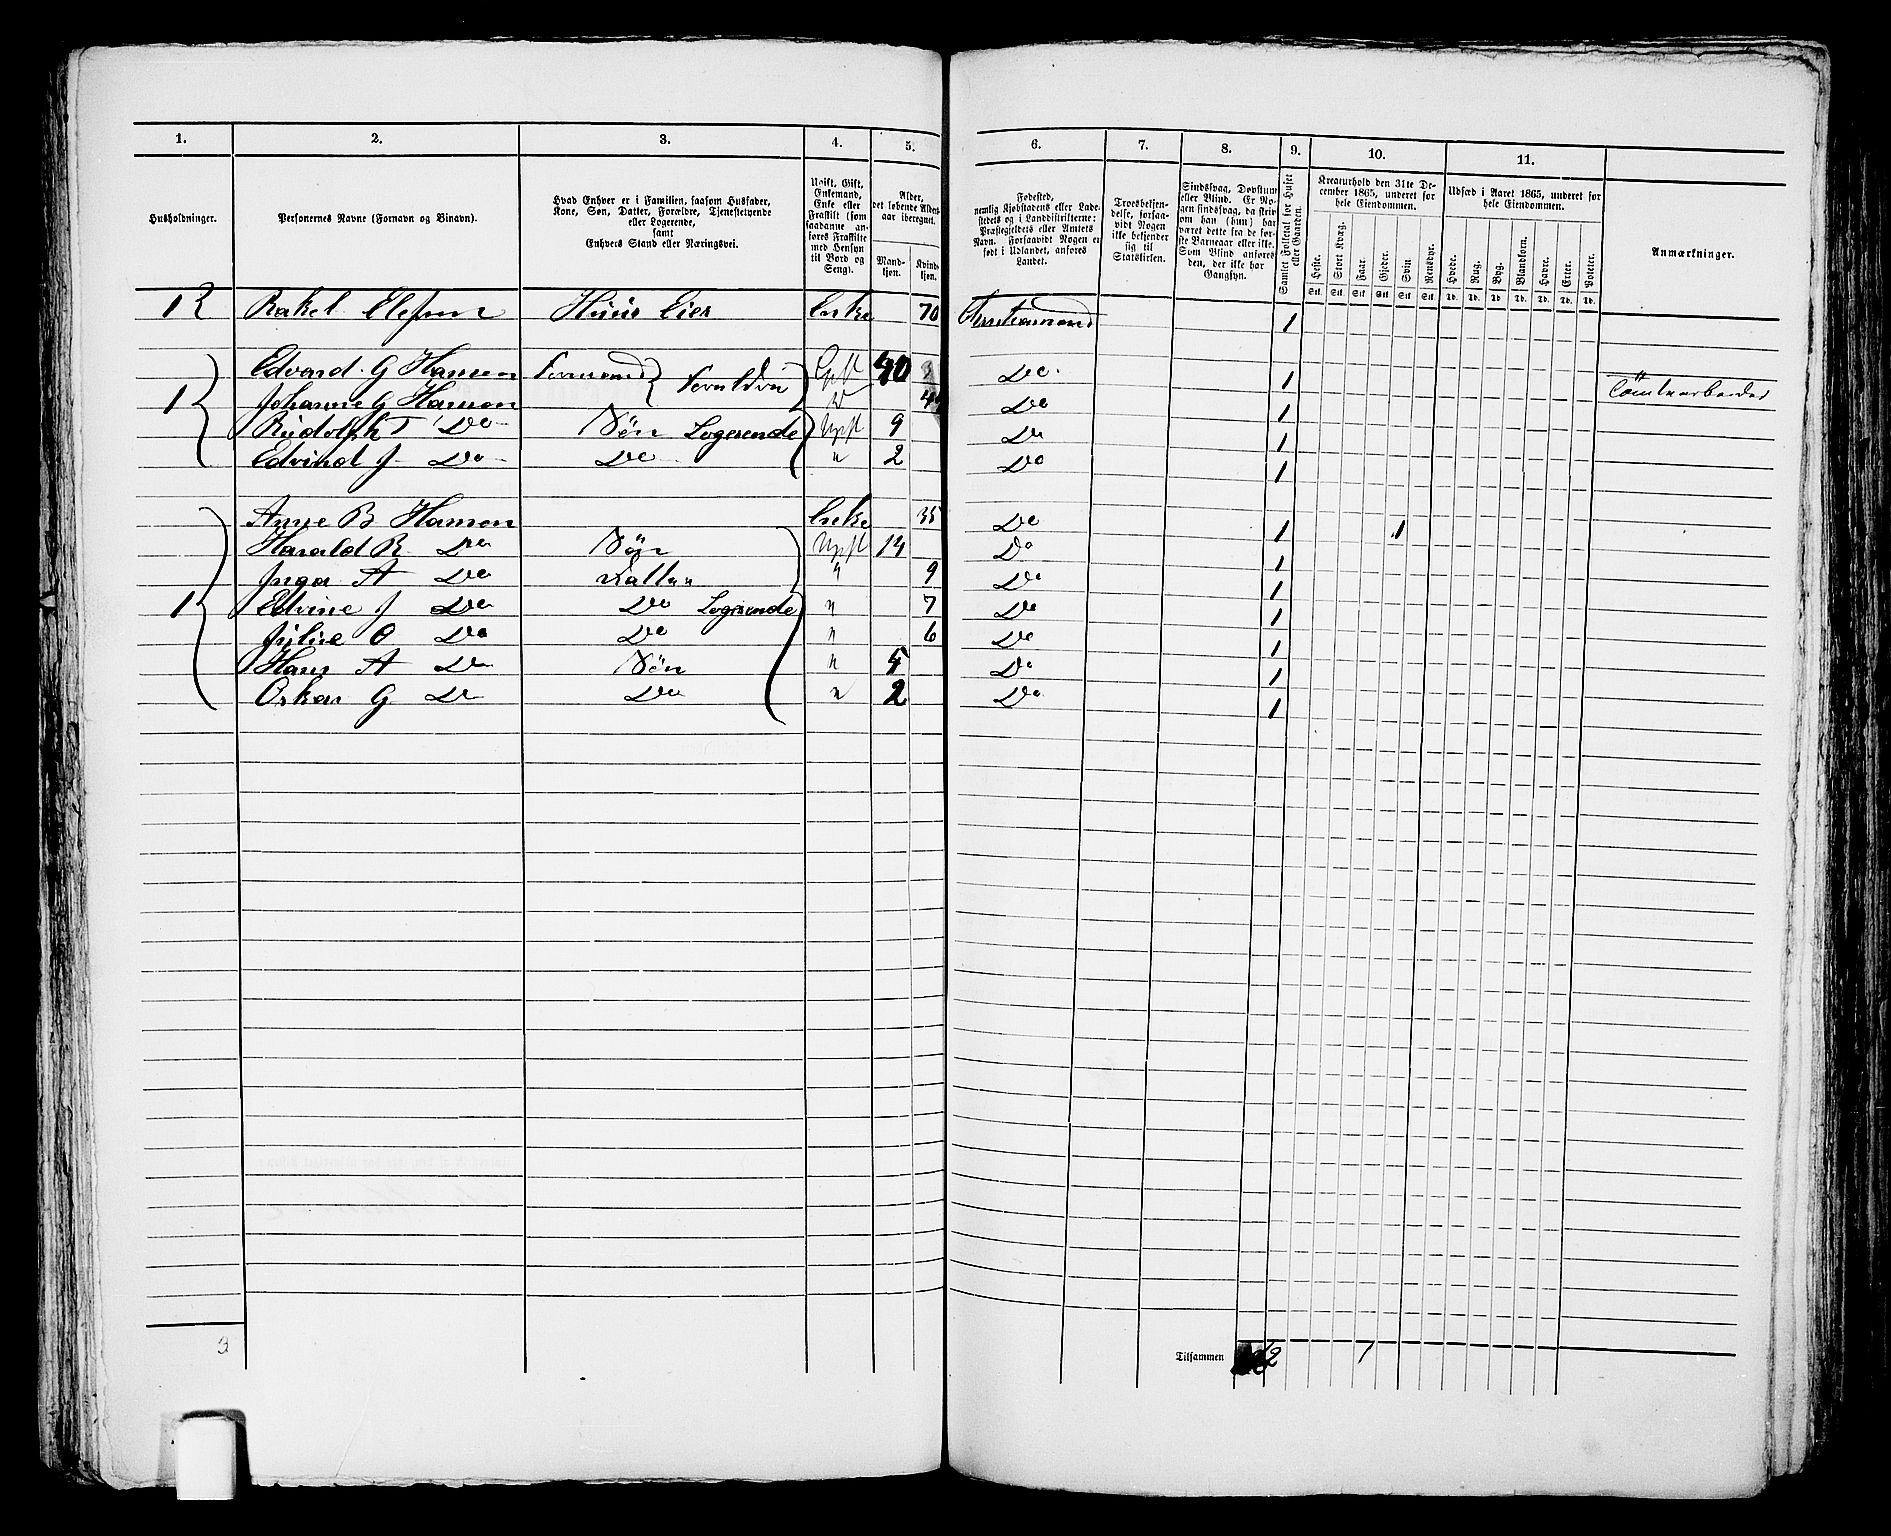 1. 2. 3. 4. 5. 6. 7. 8. 9. 10. 11.
Husholdninger.
Personernes Navne (Fornavn og Binavn).
Hvad Enhver er i Familien, saasom Husfader,
Kone, Søn, Datter, Forældre, Tjenestetyende
eller Logerende,
samt
Enhvers Stand eller Næringsvei.
Ugift, Gift,
Enkemand,
Enke eller
Fraskilt (som
saadanne an-
føres Fraskilte
med Hensyn
til Bord og
Seng).
Alder,
det løbende Alders-
aar iberegnet.
Mand-
kjøn.
Kvind-
kjøn.
Fødested,
nemlig Kjøbstadens eller Lade-
stedets og i Landdistrikterne:
Præstegjeldets eller Amtets
Navn. Forsaavidt Nogen er
født i Udlandet, anføres
Landet.
Troesbekjen-
delse, forsaa-
vidt Nogen
ikke bekjender
sig til
Statskirken.
Sindssvag, Døvstum
eller Blind. Er No-
gen sindssvag, da skriv
om han (hun) har
været dette fra de før-
ste Barneaar eller ikke.
Som Blind anføres
den, der ikke har
Gangsyn.
Samlet Folketal for Huset
eller Gaarden.
Kreaturhold den 31te De-
cember 1865, underet for
hele Eiendommen.
Heste. Stort Kvæg. Faar. Gjeder. Svin. Rensdyr.
Stk. Stk. Stk. Stk. Stk. Stk.
Udsæd i Aaret 1865, underet for
hele Eiendommen.
Hvede. Rug. Byg. Blandkorn. Havre. Erter. Poteter.
Td. Td. Td. Td. Td. Td. Td.
Anmærkninger.
1 Rakel Huus Eier Enke 70 1
Edvard G Hansen Gift 40 Do 1
1 Johanne G Hansen Do 1
Rudolph T Do Søn Logerende Ugift 9 Do 1
Edvind J Do Do " 2 Do 1
Anne B Hansen Enke 35 Do 1 1
Harald R Do Søn Ugift 14 Do 1
Inga A Do Datter " 9 Do 1
1 Edvine J Do Do Logerende " 7 Do 1
Juline O Do Do " 6 Do 1
Hans A Do Søn " Do 1
Oskar G Do Do " 2 Do 1
3 Tilsammen 12 1